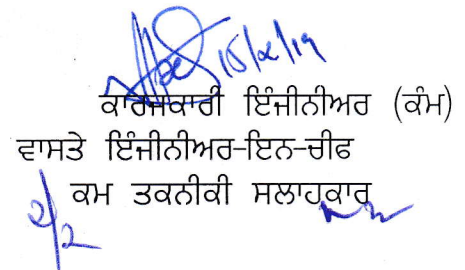 15/2/19
ਕਾਰਜਕਾਰੀ ਇੰਜੀਨੀਅਰ (ਕੰਮ)
ਵਾਸਤੇ ਇੰਜੀਨੀਅਰ-ਇਨ-ਚੀਫ
ਕਮ ਤਕਨੀਕੀ ਸਲਾਹਕਾਰ